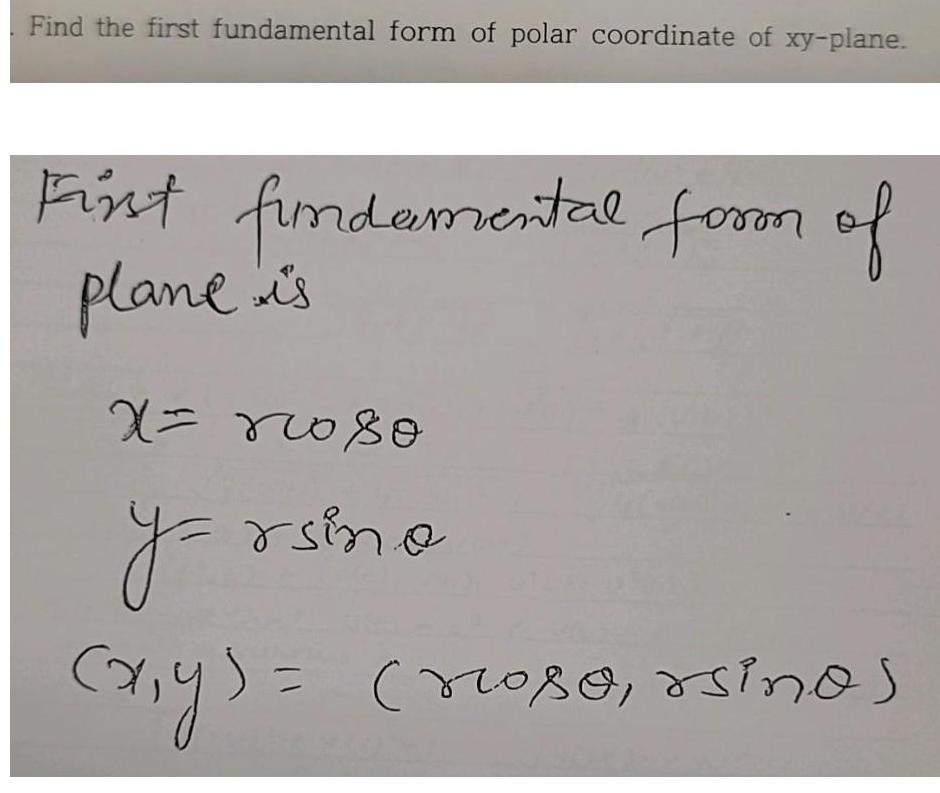 . Find the first fundamental form of polar coordinate of xy-plane.
First fundamental form of
plane is
x = rcosθ
y = rsinθ
(x,y) = (rcosθ, rsinθ)